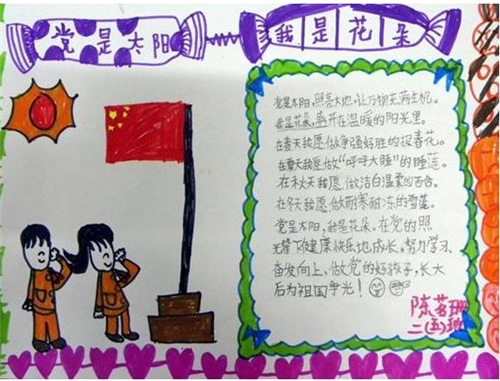 党是太阳
我是花朵
党是太阳,照亮大地,让万物充满生机。
我是花朵,盛开在温暖的阳光里。
在春天我愿做争强好胜的报春花。
在夏天我愿做“呼呼大睡”的睡莲。
在秋天我愿做洁白温柔的百合。
在冬天我愿做耐寒耐冻的雪莲。
党是太阳,我是花朵,在党的照
下健康快乐地成长。努力学习、
奋发向上、做党的好孩子,长大
后为祖国争光!
陈茗珊
二(五)班